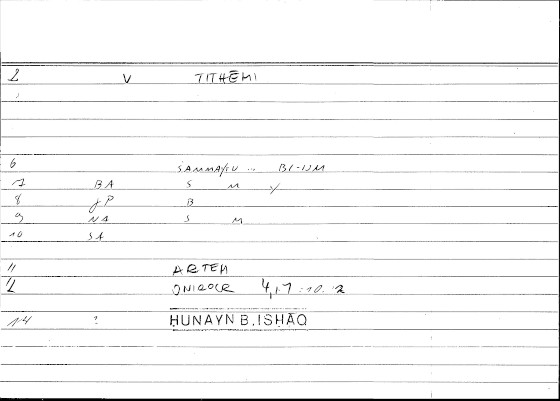 2 V TITHĒMI
6 SAMMAITU ... BI-ISM
7 BA S M
8 JP B
9 NA S M
10 SA
11 ARTEM
12 ONIROCR 4,17 :10. 12
14 ? HUNAYN B. ISHĀQ